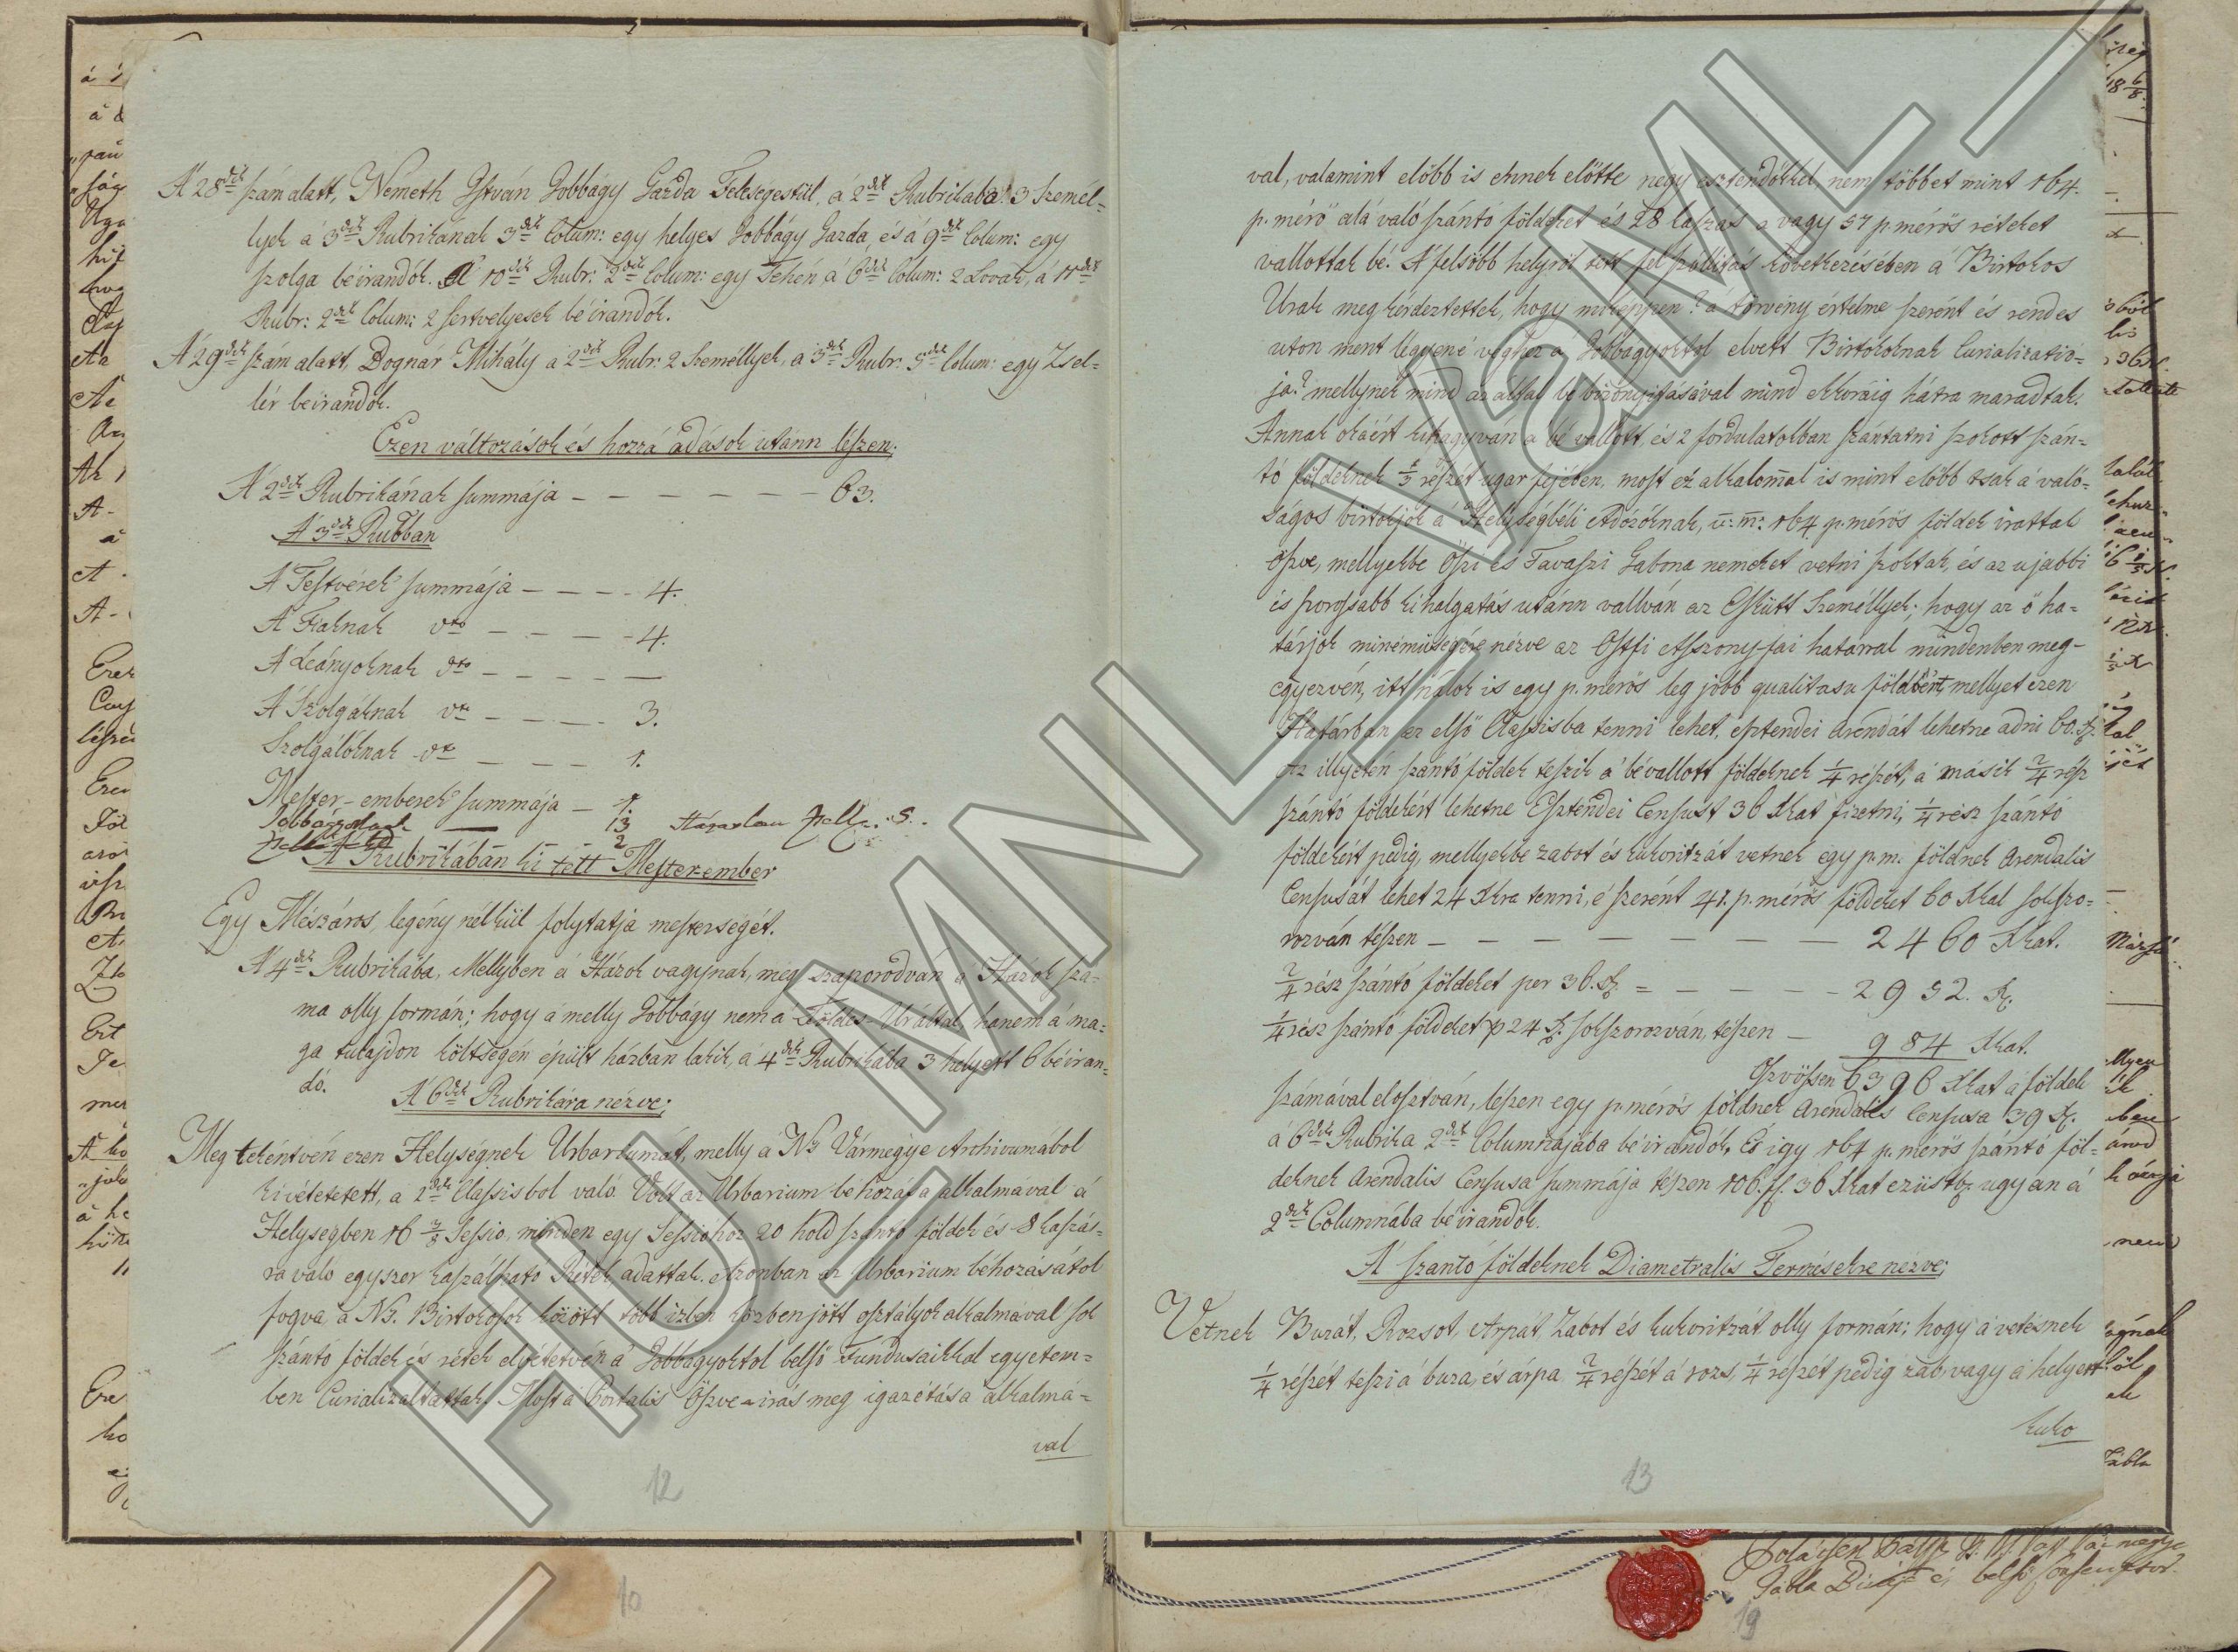 A' 28dik szám alatt, Németh István Jobbágy Gazda Feleségestül, á 2dik Rubrikába 3 Személ=
lyek á 3dik Rubrikának 3dik Colum: egy helyes Jobbágy Gazda, és á 9dik Colum: egy
szolga béirandók. A' 10dik Rubr: 2dik Colum: egy Tehen á 6dik Colum: 2 Lovak, á 11dik
Rubr: 2dik Colum: 2 sertvélyesek béirandók.
A' 29dik szám alatt, Bognár Mihály a 2dik Rubr: 2 Személlyek, a 3dik Rubr: 5dik Colum: egy Zsel=
lér beirandók.
Ezen változások és hozzá adások utánn lészen;
A' 2dik Rubrikának summája – – – – – – – 63.
A' 3dik Rubban
A' Testvérek summája – – – – 4.
A' Fiaknak dtto – – – – 4.
A' Leányoknak dtto – – – – –
A' Szolgáknak dtto – – – – 3.
Szolgálóknak dtto – – – 1.
Mester-emberek summája – 1.
Jobbágyoknak — 13 Házatlan Zsell. 5.
2
A' Rubrikában ki tett Mesterember
Egy Mészáros, legény nélkül folytatja mesterségét.
A' 4dik Rubrikába, Mellyben a' Házok vagynak, meg szaporodván a' Házok szá=
ma olly formán; hogy á melly Jobbágy nem a Földes-Ur által, hanem á ma=
ga tulajdon költségén épült házban lakik, á 4dik Rubrikába 3 helyett 6 béiran=
dó.
A' 6dik Rubrikára nézve;
Meg tekéntvén ezen Helységnek Urbariumát, melly á Ns Vármegye Archivumából
ki vétetetett, a 2dik Classisbol való. Volt az Urbarium behozása alkalmával á
Helységben 16 3/8 Sessio, minden egy Sessiohoz 20 hold szántó földek és 8 kaszás=
ra való egyszer kaszálható Rétek adattak. Azonban az Urbarium béhozásától
fogva á Ns. Birtokosok között több izben közbenjött osztályok alkalmával sok
szántó földek és rétek elvétetvén á Jobbágyoktol belső Fundusaikkal egyetem=
ben Curializáltattak. Most á Portalis Öszve-irás meg igazétása alkalmá=
val
12
val, valamint előbb is ennek előtte négy esztendőkkel nem többet mint 164.
p. mérő alá való szántó földeket és 28 kaszás a vagy 57 p. mérős réteket
vallottak bé. A' felsőbb helyről tett fel szóllitás következésében á Birtokos
Urak meg kérdeztettek, hogy miképpen? a törvény értelme szerént és rendes
uton ment légyené véghez a' Jobbágyoktol elvett Birtokoknak Curializatio=
ja? mellynek mind az által bé bizonyitásával mind ekkoráig hátra maradtak.
Annak okáért kihagyván a bé vallott, és 2 fordulatokban szántatni szokott szán=
tó földeknek 1/3 részét ugar fejében, most ez alkalommal is mint előbb tsak á való=
ságos birtokjok á Helységbéli Adózóknak, u: m: 164 p. mérős földek irattak
öszve, mellyekbe Őszi és Tavaszi Gabona nemeket vetni szoktak, és az ujabbi
is szorossabb ki halgatás utánn vallván az Esküdt Személlyek; hogy az ő ha=
tárjok minémüségére nézve az Ostfi Asszony-fai határral mindenben meg-
egyezvén, itt nálok is egy p. mérős leg jobb qualitásu földbért, mellyet ezen
Határban az első Classisba tenni lehet, esztendei Arendát lehetne adni 60. x.
Az illyetén szántó földek teszik a' bévallott földeknek 1/4 részét, á másik 2/4 rész
szántó földekért lehetne Esztendei Censust 36 Xkat fizetni, 1/4 rész szántó
földekért pedig, mellyekbe zabot és kukoritzát vetnek egy p. m. földnek Arendalis
Censusát lehet 24 Xkra tenni, é szerént 41. p. mérős földeket 60 Xkal sokszo=
rozván tészen – – – – – – – 2460 Xkat.
2/4 rész szántó földeket per 36. x. = – – – – 2952. x.
1/4 rész szántó földeket p 24 x. sokszorozván, tészen – 984 Xkat.
Öszvössen 6396 Xkat á földek
számával elosztván, lészen egy p. mérős földnek Arendalis Censusa 39 x.
á 6dik Rubrika 2dik Columnájába béirandók, És igy 164 p. mérős szántó föl=
deknek Arendalis Censusa summája tészen 106. f. 36 Xkat ezüstb. ugyan á
2dik Columnába béirandók.
A' szántó földeknek Diametralis Termésekre nézve;
Vetnek Buzát, Rozsot, Arpát, Zabot és kukoritzát olly formán; hogy á vetésnek
1/4 részét teszi á buza, és árpa 2/4 részét á rozs, 1/4 részét pedig zab, vagy á helyett
kuko
13
10
19